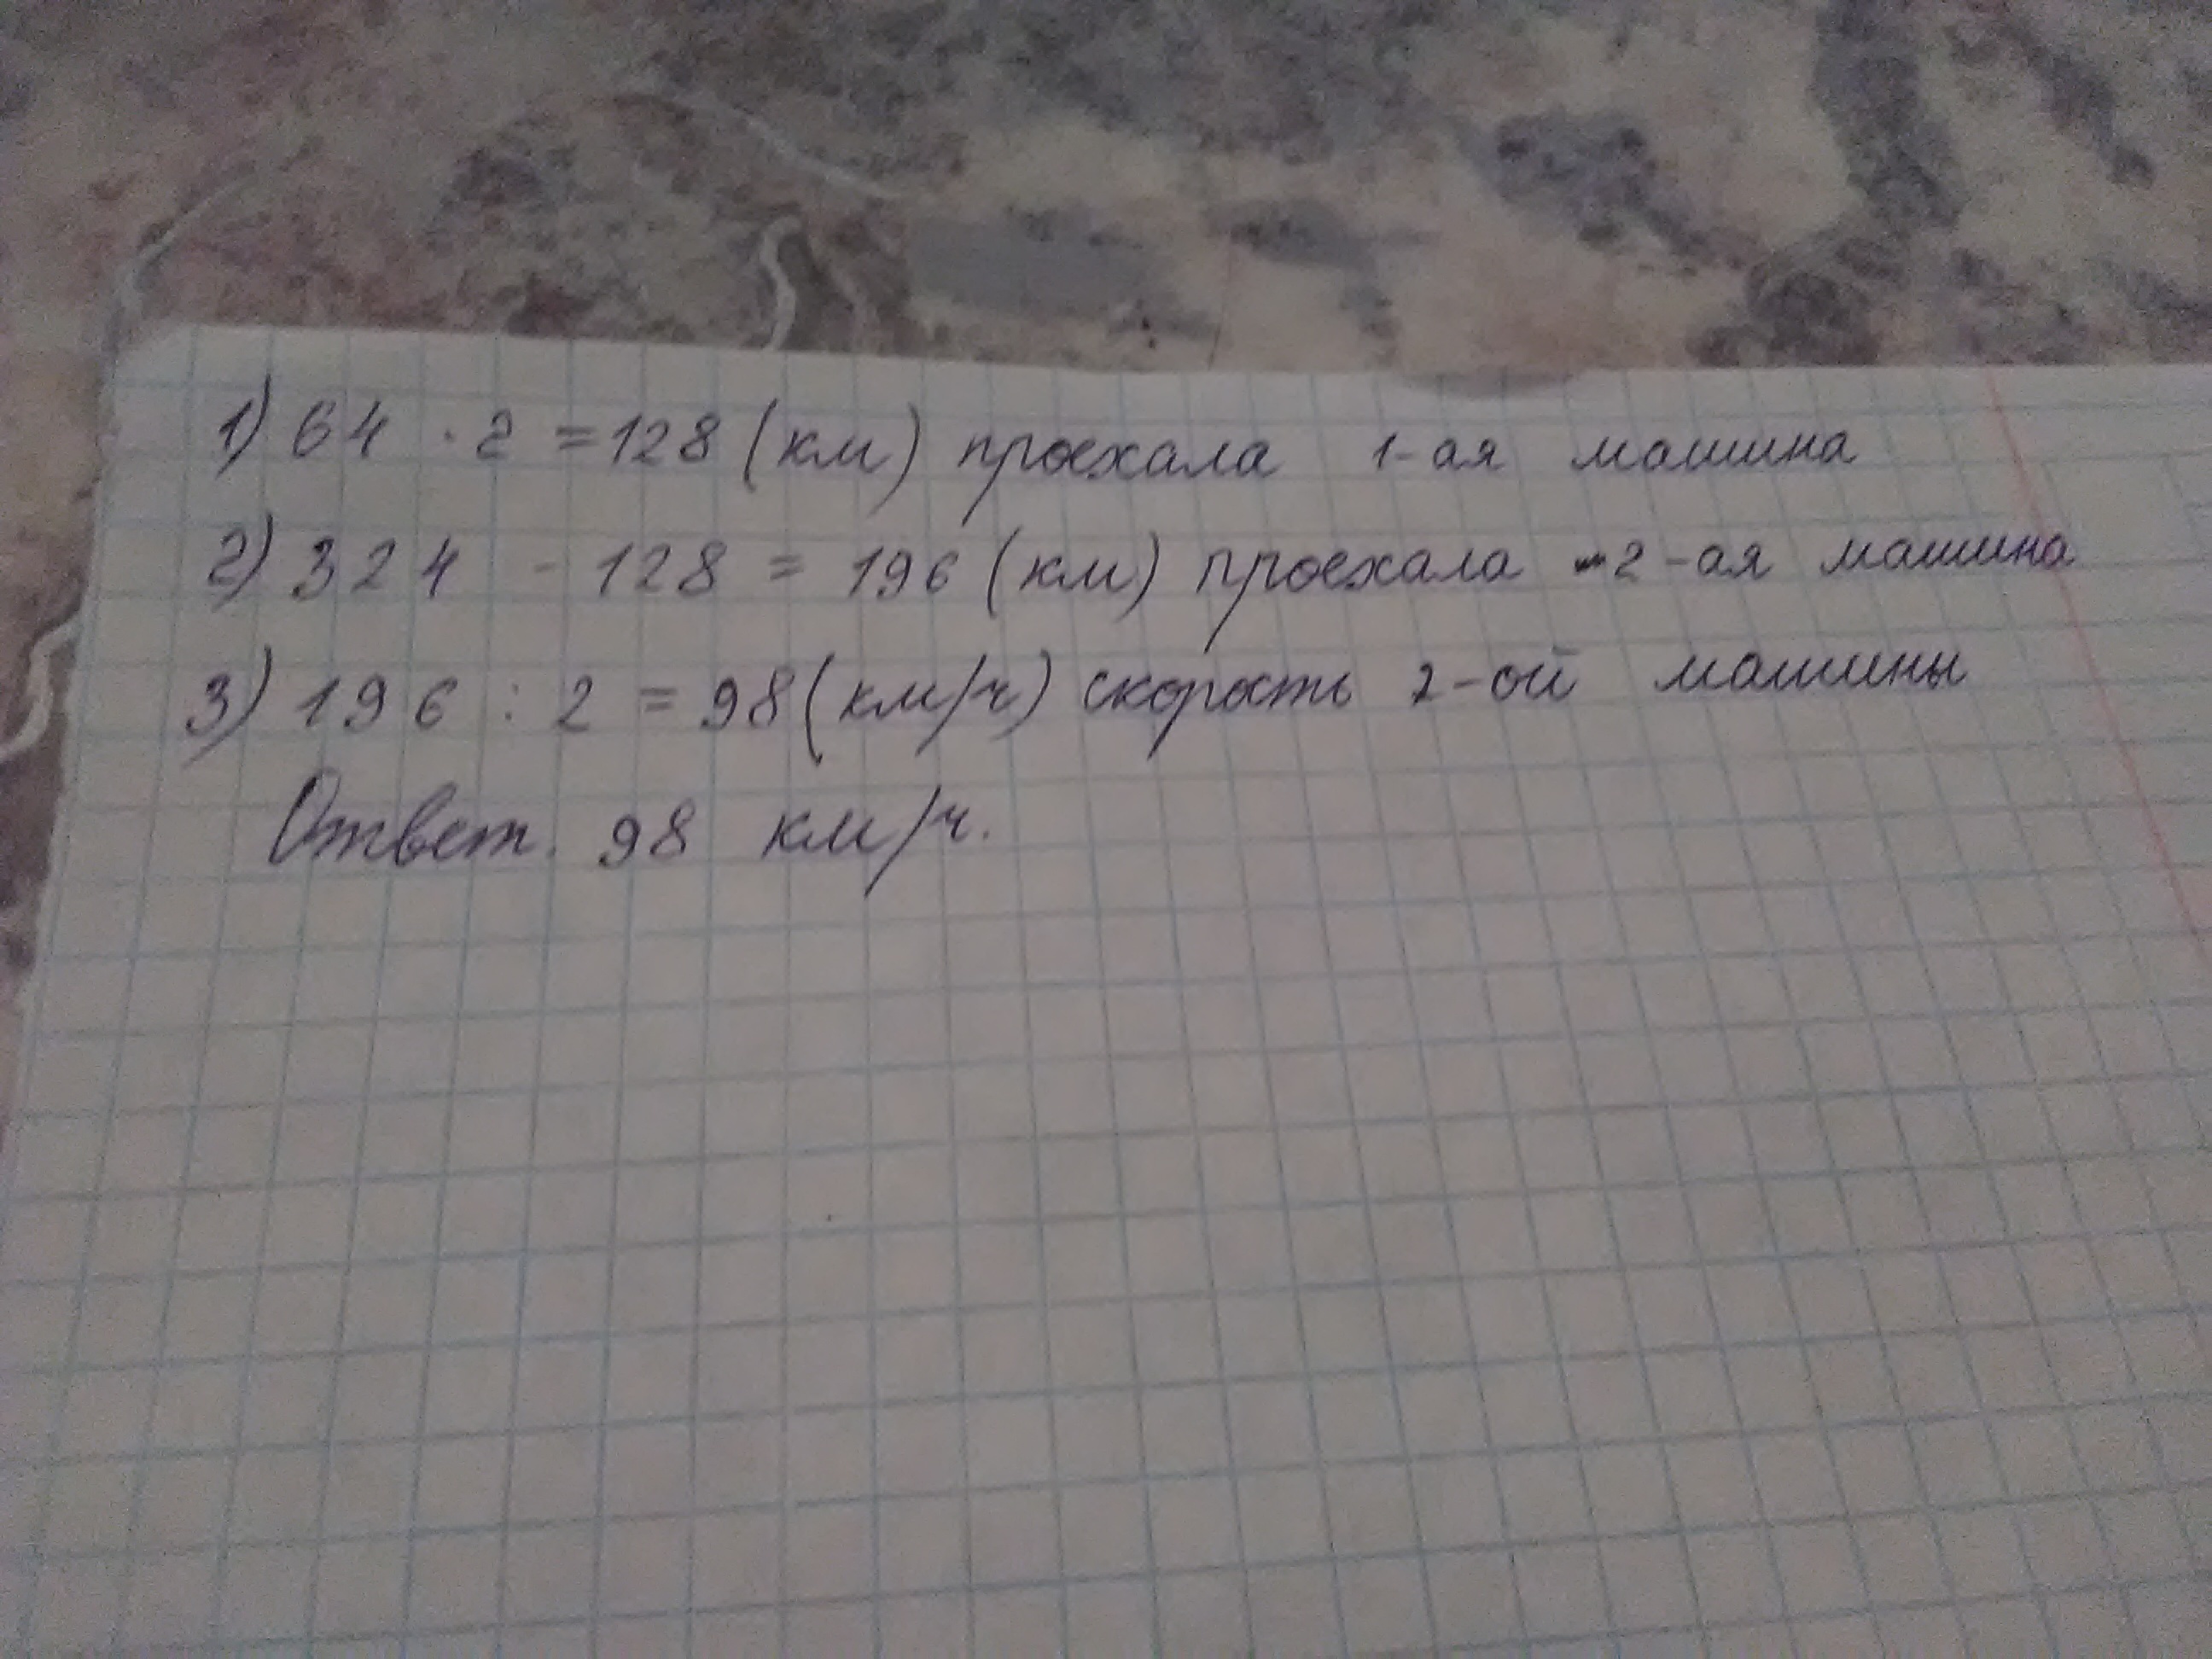 1) 64 · 2 = 128 (км) проехала 1-ая машина
2) 324 - 128 = 196 (км) проехала 2-ая машина
3) 196 : 2 = 98 (км/ч) скорость 2-ой машины
Ответ. 98 км/ч.